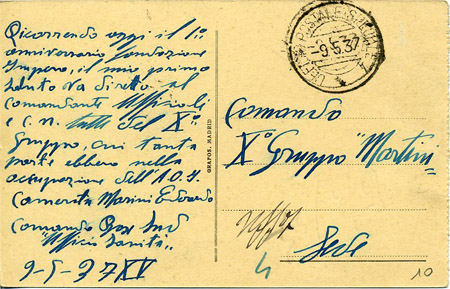 Ricorrendo oggi il 1º
anniversario fondazione
Impero, il mio primo
saluto va diretto al
comandante Ufficiali
e C.N. tutti del Xº
Gruppo, cui tanta
parte ebbero nella
occupazione dell'A.O.I.
Camerata Marini Edoardo
Comando Sud
"Ufficio Sanità"
9-5-37 XV
GRAFOS. MADRID
-9.5.37
Comando
Xº Gruppo "Martini"
Sede
10